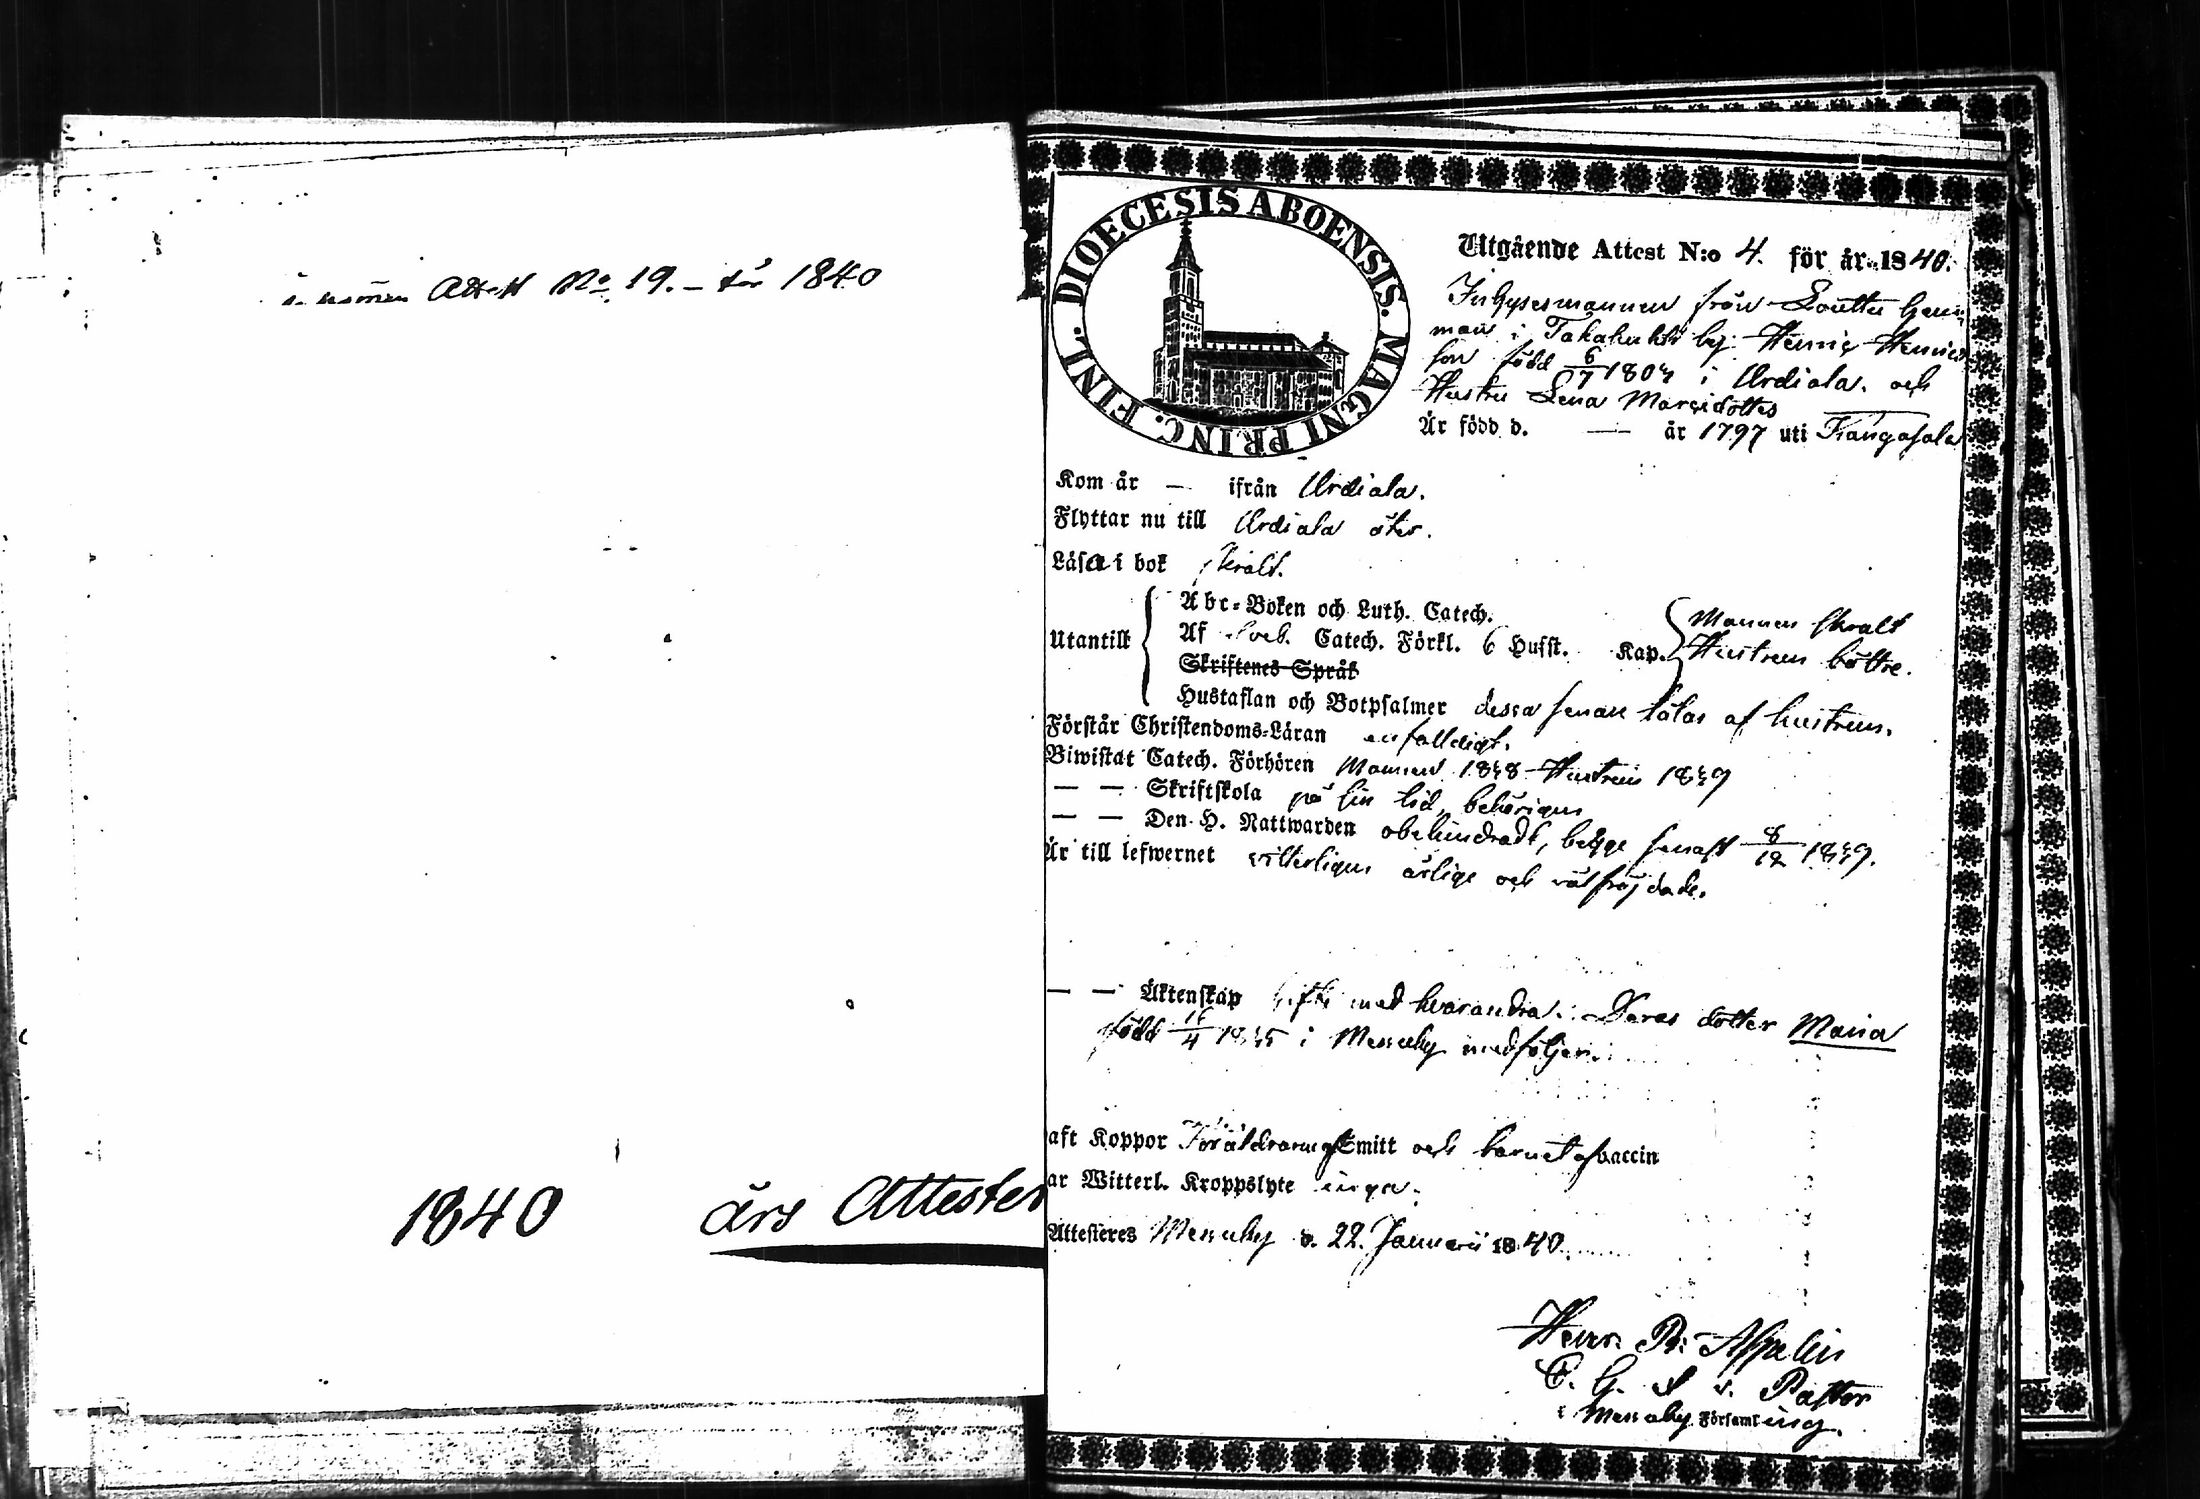 Attest No 19. – för 1840
1840 års Attester
DIOECESIS ABOENSIS. MAGNI PRINC. FINL.
Utgående Attest N:o 4. för år 1840.
Inhysesmannen från
i Takahuhti by Henric Henrics
son född 6/7 1807 i Urdiala. och
Hustru Lena Marcidotter
Är född d. — år 1797 uti Kangasala
Kom år — ifrån Urdiala.
Flyttar nu till Urdiala åter.
Läsa i bok skralt.
Abc-Boken och Luth. Catech.
Utantill Af Sveb. Catech. Förkl. 6 Hufst. Kap. Mannen skralt
Hustrun bättre.
Skriftenes Språk
Hustaflan och Botpsalmer dessa senare af hustrun.
Förstår Christendoms-Läran enfaldigt.
Biwistat Catech. Förhören Mannen 1838 Hustrun 1839
— — Skriftskola på sin tid, behörigen
— — Den H. Nattwarden obehindradt, begge senast 8/12 1839.
Är till lefwernet vitterligen ärlige och välfräjdade.
— — Äktenskap gifte med hvarandra. Deras dotter Maria
född 4 1835 i Messuby medföljer.
aft Koppor Föräldrarna af Smitt och barnet af vaccin
ar Witterl. Kroppslyte inga.
Attesteres Messuby d. 22. Januarii 1840.
Henr. Aspelin
Pastor
i Messuby Församling.